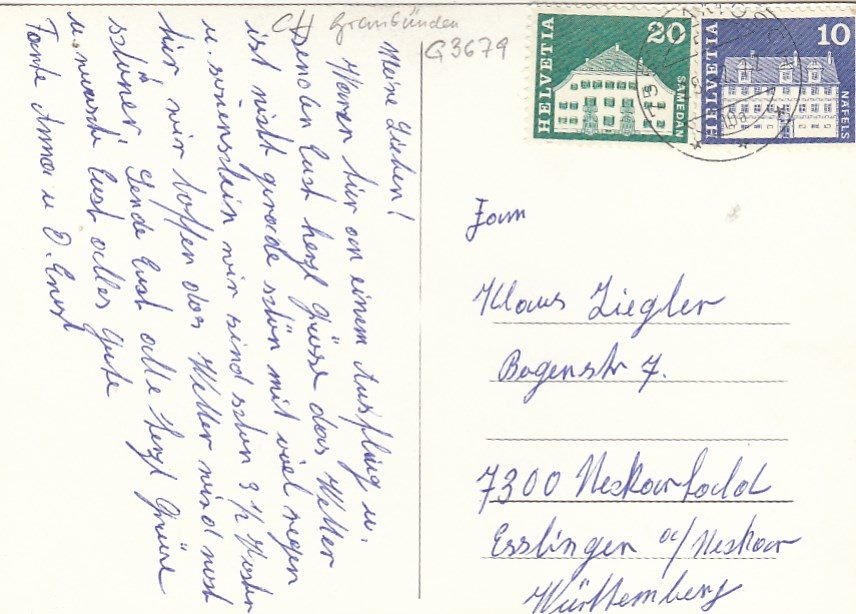 CH Graubünden
G3679
HELVETIA 20 SAMEDAN
HELVETIA 10 NÄFELS
Meine Lieben!
Waren hier an einem Ausflug u.
senden Eust herzl Grüsse das Wetter
ist nicht gerade schön mit viel regen
u. sonenschein wir sind schon 3 ½
hier wir hoffen das Wetter wird nost
schöner, Sende Eust alle herzl Grüsse
u. wünscht Eust alles Gute
Tante Anna u O. Ernst
Fam
Klaus Ziegler
Bogenstr 7.
7300 Neskar
Esslingen a/Neskar
Württemberg